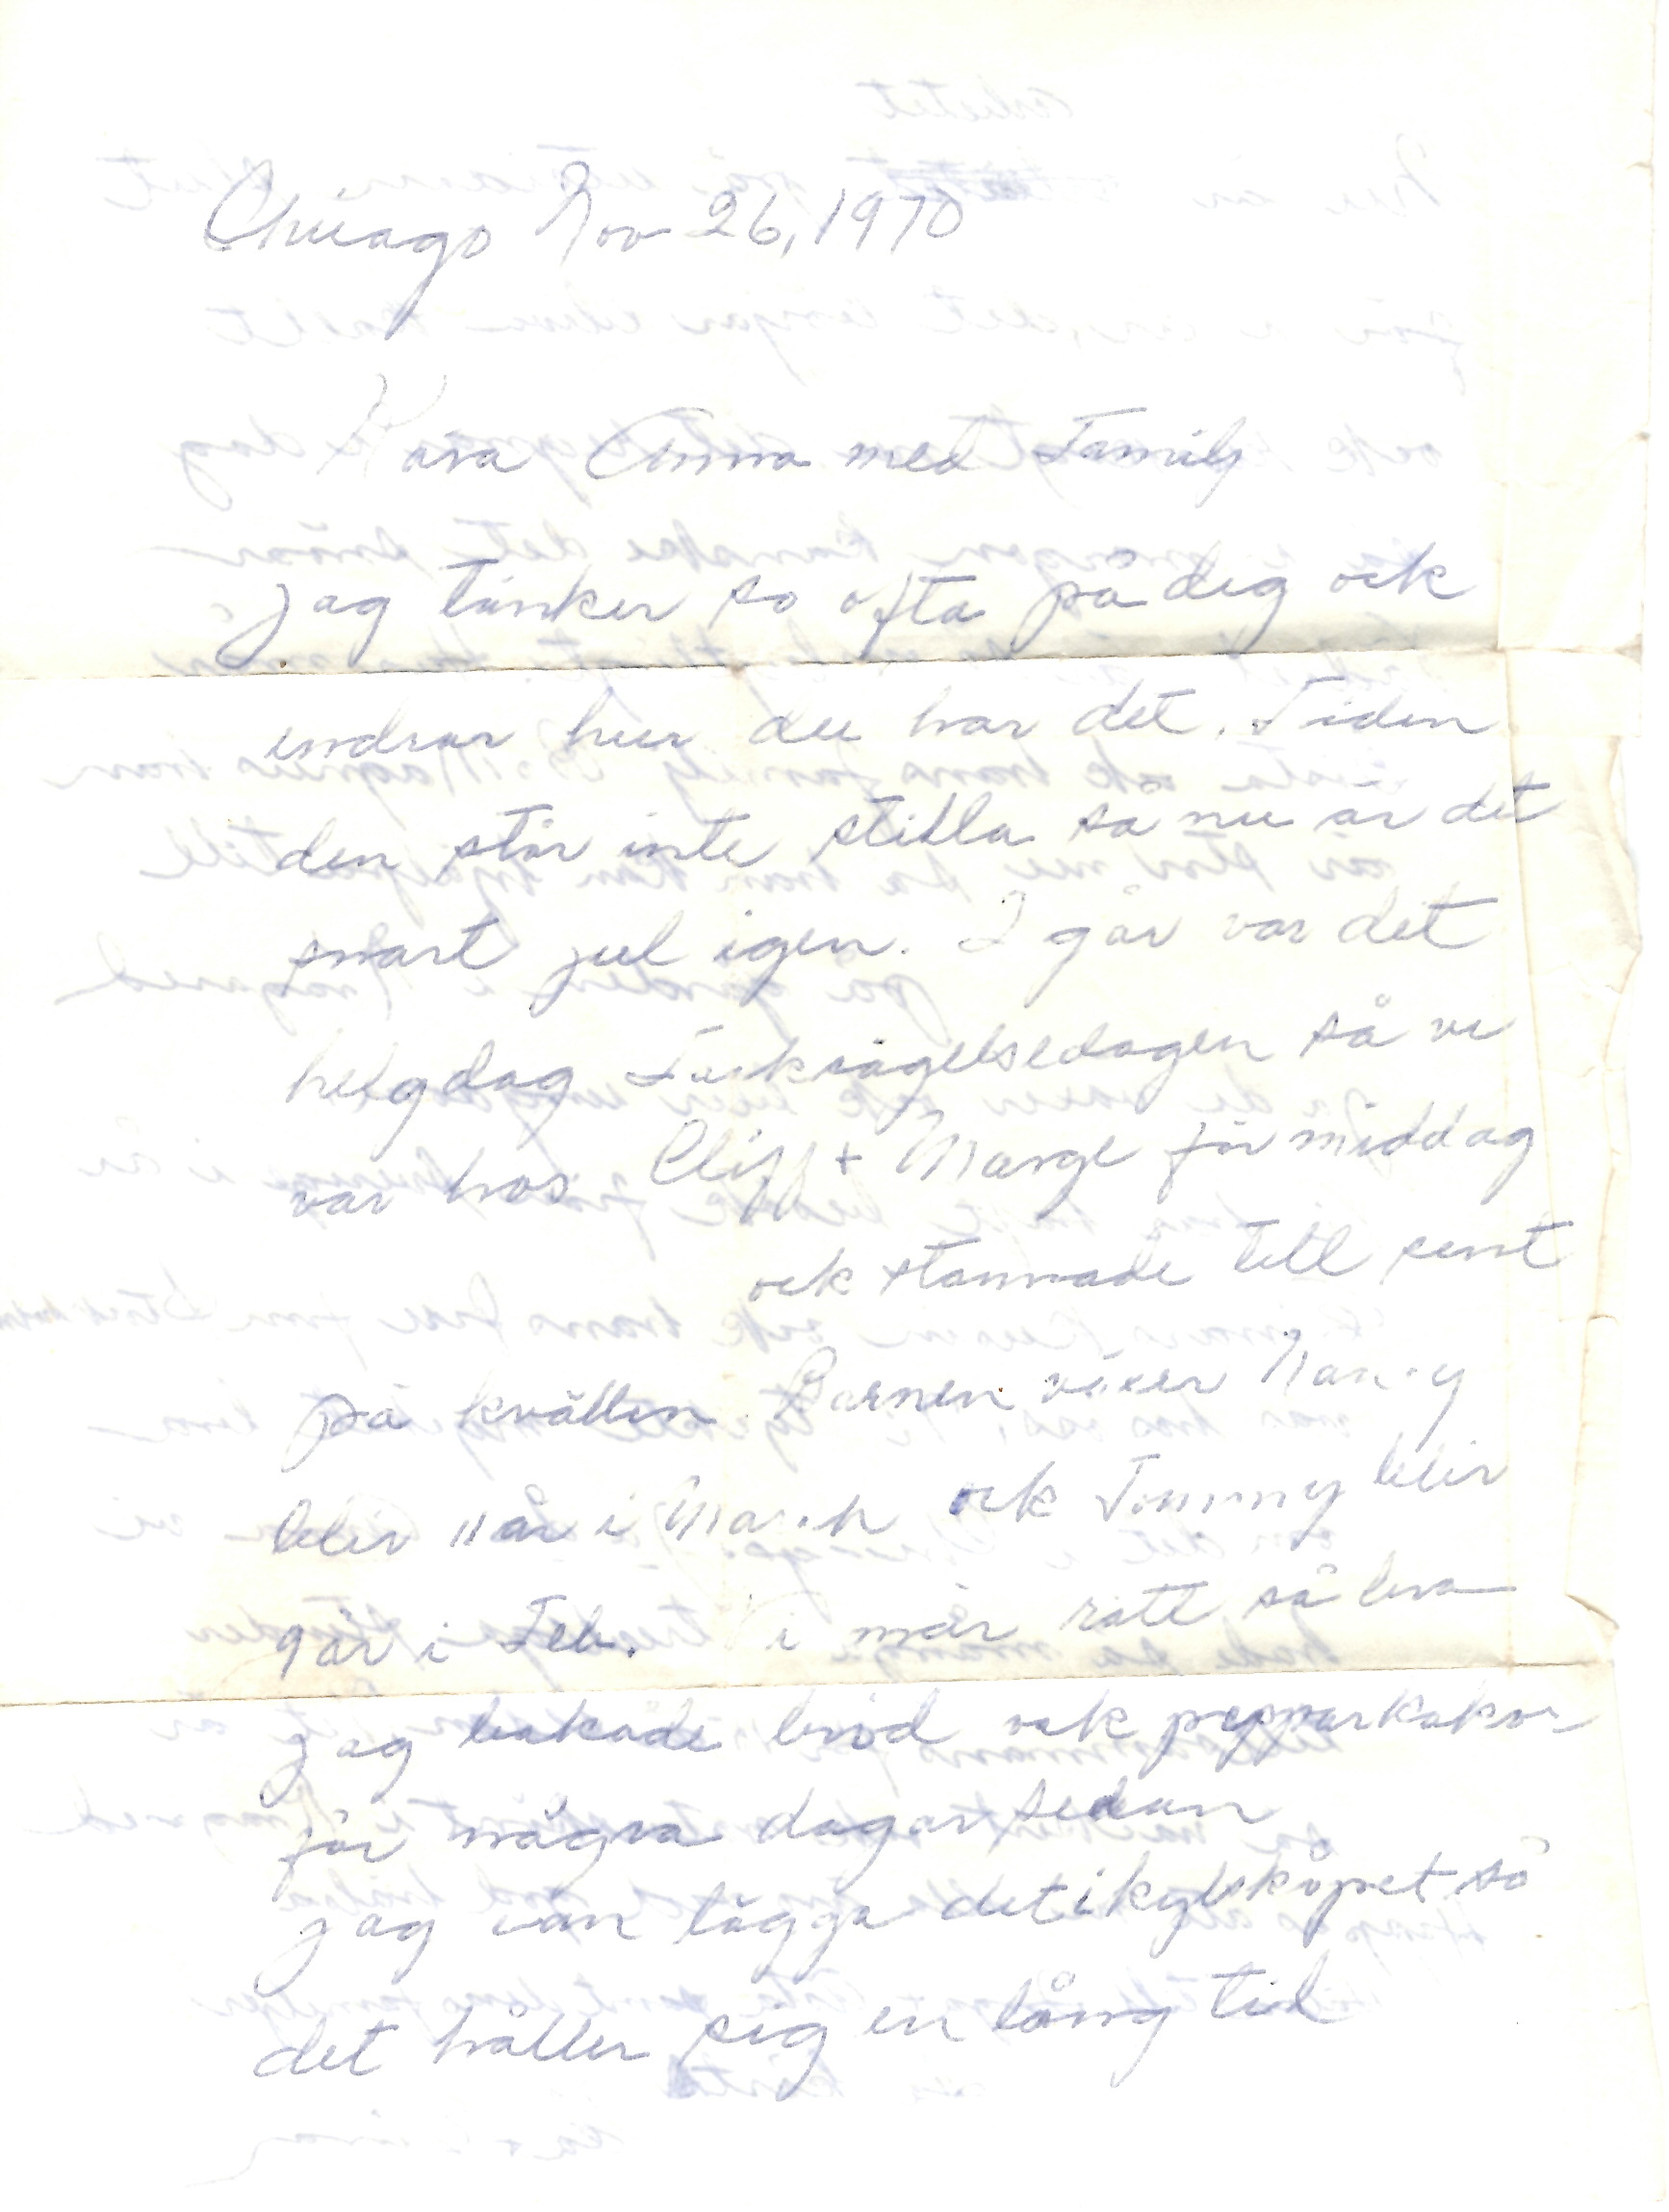 Chicago Nov 26, 1970
Kära Anna med Family
Jag tänker so ofta på dig ock
undrar hur du har det. Tiden
den står inte stilla så nu är det
snart jul igen. I går var det
helgdag Tacksägelsedagen så vi
var hos Cliff + Marge för middag
ock stannade till sent
på kvällen. Barnen växer Nancy
blir 11 år i March ock Tommy blir
9 år i Feb. Vi mår rätt så bra
jag bakade bröd ock pepparkakor
för några dagar sedan
jag kan lägga det i kylskåpet så
det håller sig en lång tid